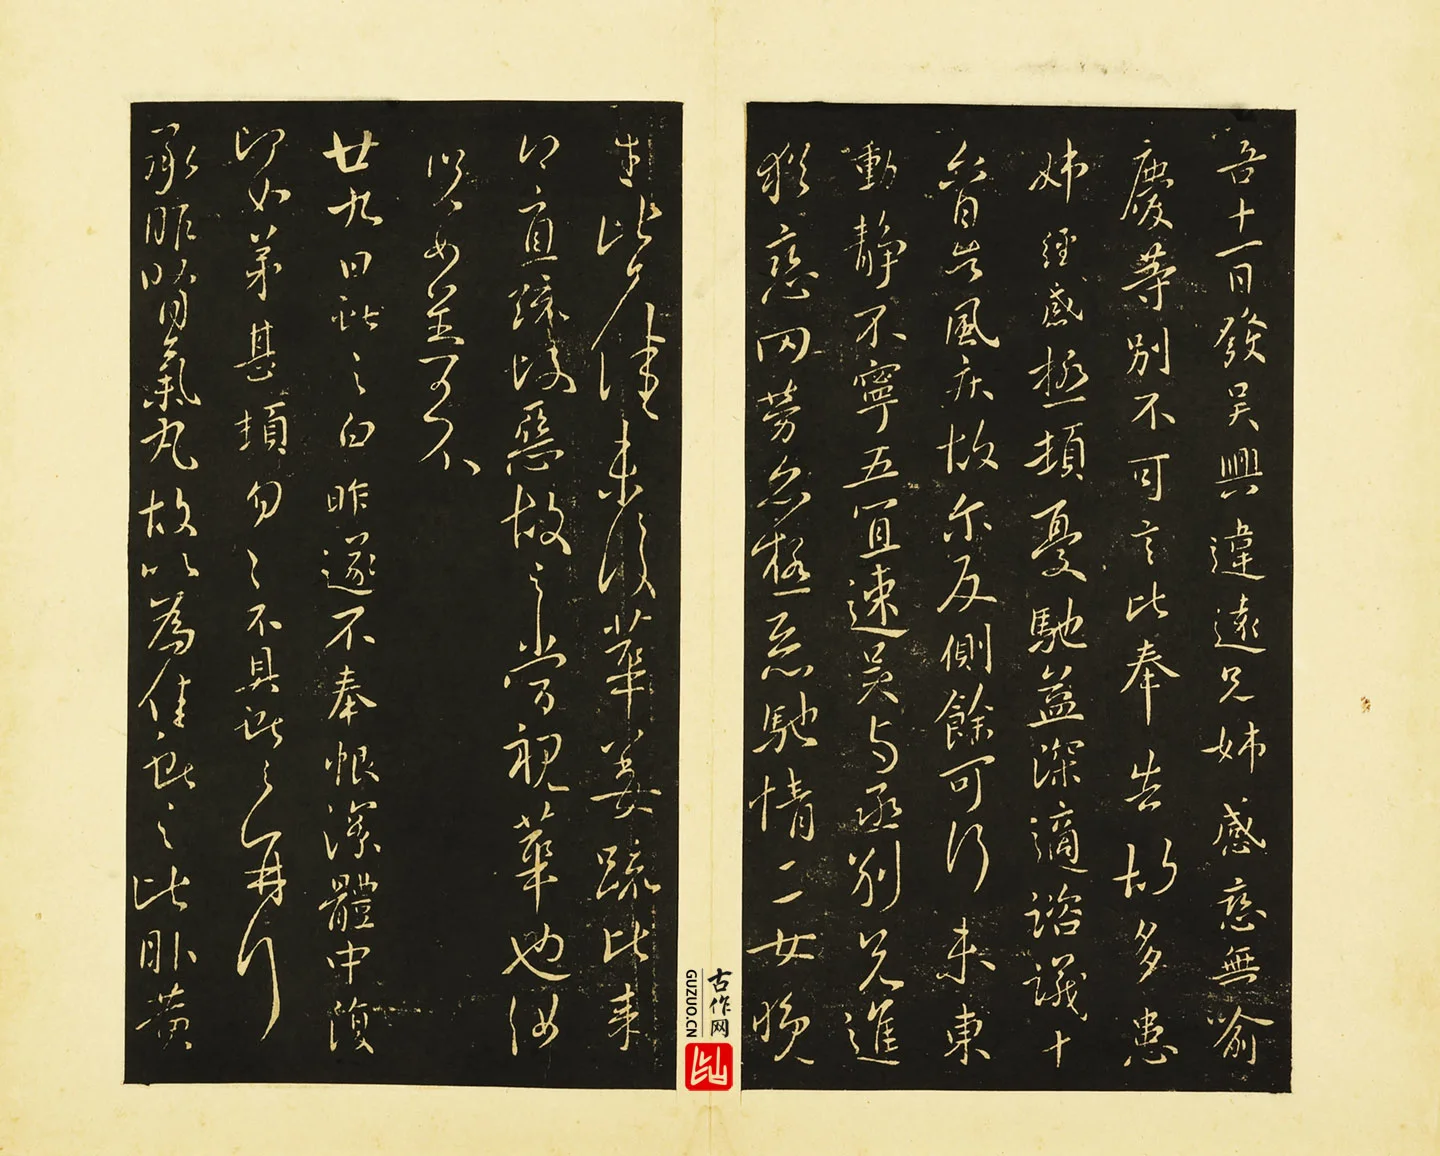 吾十一日發吳興違遠兄姊感戀無喻
慶等別不可言比奉告故多患
姊經感極頓憂馳益深適諮議十
六日告風疾故尔反側餘可行未東
動靜不寧五宜速吳与丞別兄進
猶戀罔勞馳情二女晚
生比佳未復華姜疏比來
宜疏惡故之當視華也汝
女並可不
廿九日獻之白昨遂不奉恨深體中復
何如弟甚頓匆匆不具獻之再拜
承服腎氣丸故以為佳獻之比服黃
古作网
GUZUO.CN